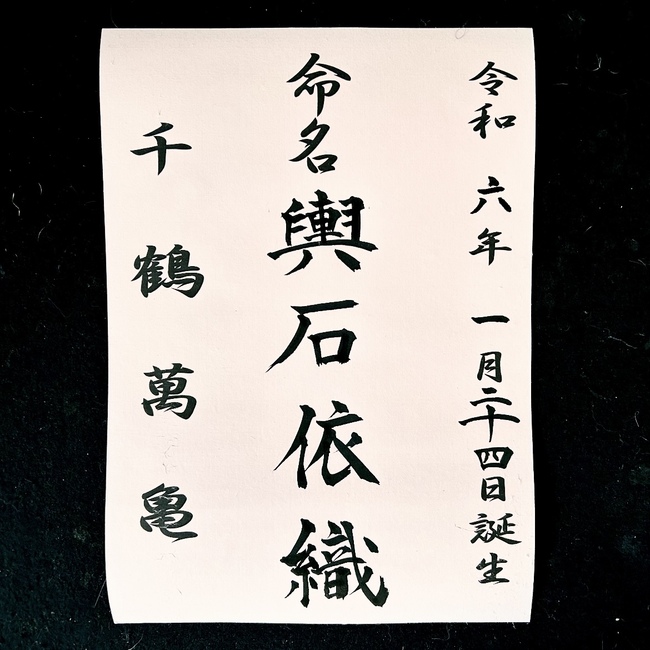 令和 六年 一月二十四日誕生
命名 輿石依織
千鶴萬亀